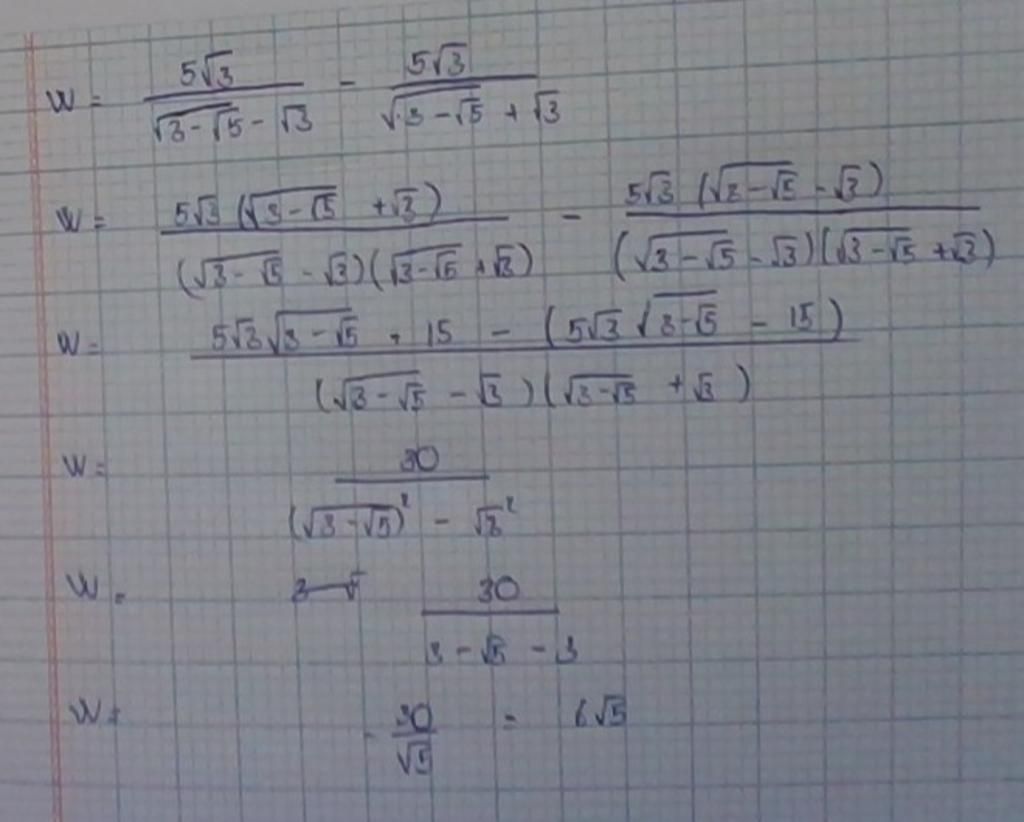 W = \frac{5\sqrt{3}}{\sqrt{3-\sqrt{5}} - \sqrt{3}} - \frac{5\sqrt{3}}{\sqrt{3-\sqrt{5}} + \sqrt{3}}
W = \frac{5\sqrt{3}(\sqrt{3-\sqrt{5}} + \sqrt{3})}{(\sqrt{3-\sqrt{5}} - \sqrt{3})(\sqrt{3-\sqrt{5}} + \sqrt{3})} - \frac{5\sqrt{3}(\sqrt{3-\sqrt{5}} - \sqrt{3})}{(\sqrt{3-\sqrt{5}} - \sqrt{3})(\sqrt{3-\sqrt{5}} + \sqrt{3})}
W = \frac{5\sqrt{3}\sqrt{3-\sqrt{5}} + 15 - (5\sqrt{3}\sqrt{3-\sqrt{5}} - 15)}{(\sqrt{3-\sqrt{5}} - \sqrt{3})(\sqrt{3-\sqrt{5}} + \sqrt{3})}
W = \frac{30}{(\sqrt{3-\sqrt{5}})^2 - \sqrt{3}^2}
W = \frac{30}{3 - \sqrt{5} - 3}
W = -\frac{30}{\sqrt{5}} = 6\sqrt{5}